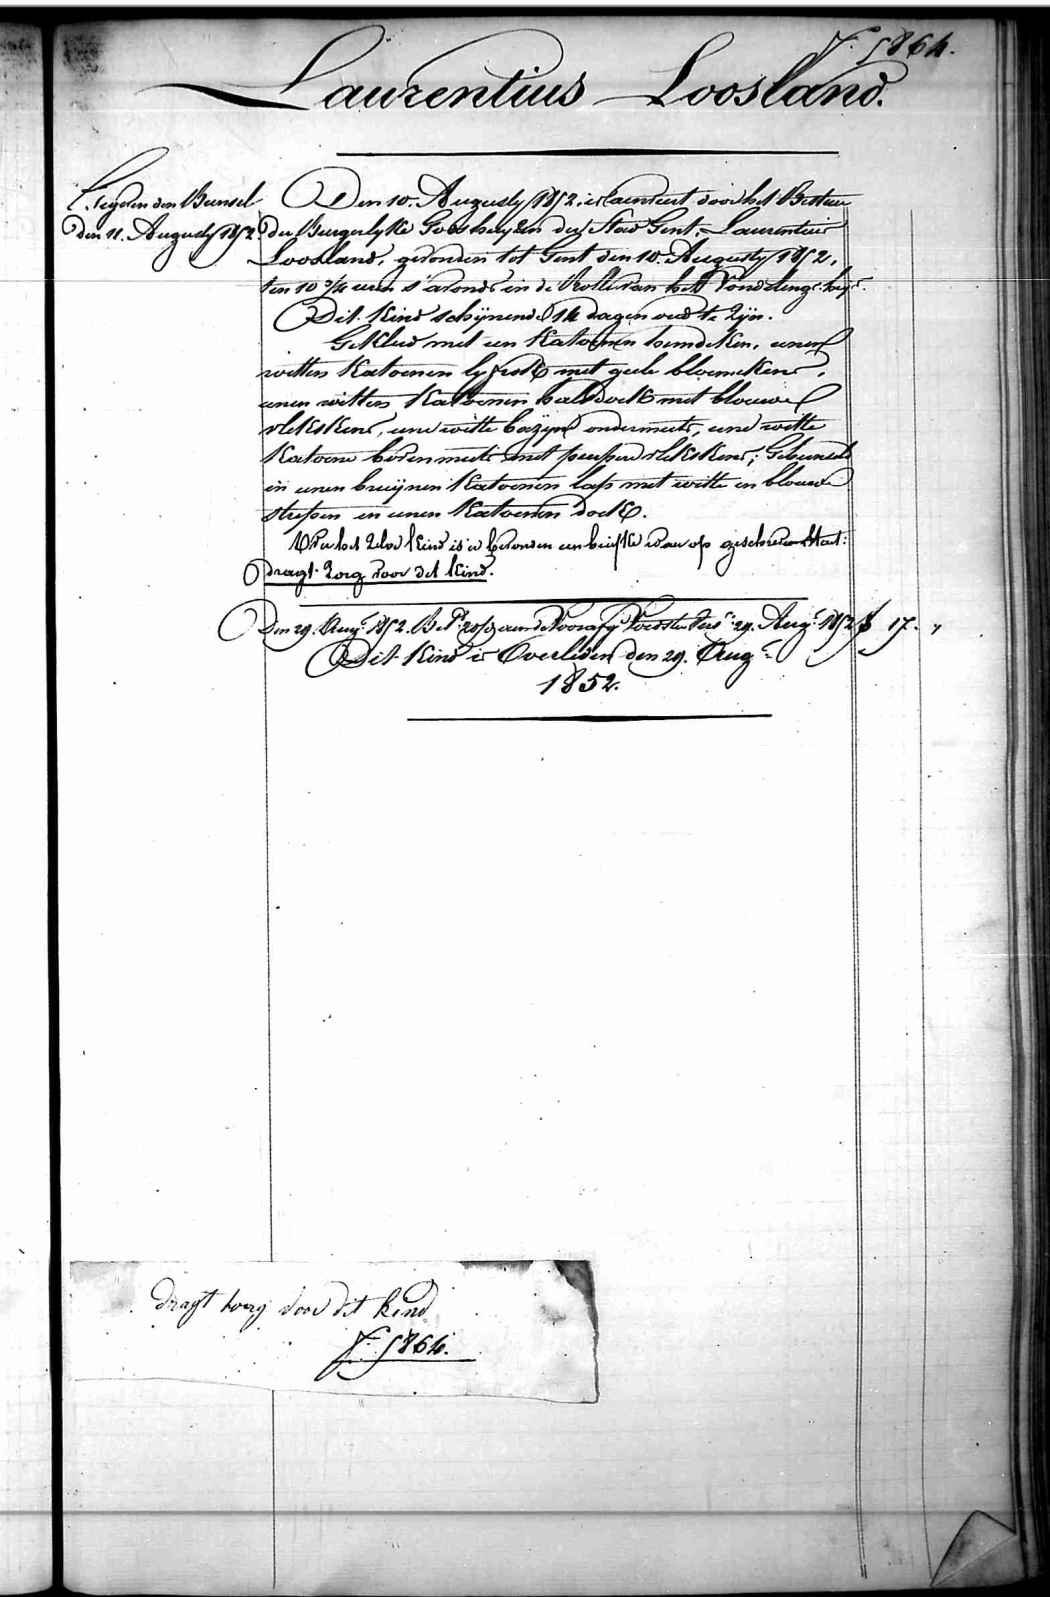 N.º 5864.
Laurentius Loosland.
den 11. Augusty 1852.
Den 10. Augusty 1852. is aenveert door het Bestuer
der Burgerlyke Godshuyzen der Stad Gent, Laurentius
Loosland, gevonden tot Gent den 10. Augusty 1852,
ten 10 3/4 uren s'avonds in de Rolle van het Vondelings huys.
Dit Kind schynende 14 dagen oud te zyn.
Gekleed met een Katoenen hemdeken, eenen
witten Katoenen lyfrok met geele bloemekens,
eenen witten Katoenen halsdoek met blouwe
vlekskens, eene witte bazyne ondermuts, eene witte
Katoene bovenmuts met peerse vlekskens; Gebunseld
in eenen bruynen Katoenen lap met witte en blouwe
strepen en eenen Katoenen doek.
By het zelve Kind is er gevonden een briefke waer op geschreven staet:
dragt zorg voor dit kind.
Den 29. Aug.t 1852. Bet.d aen de Voorsten 29. Aug.t 1852 f 17. "
Dit Kind is Overleden den 29. Aug.t
1852.
dragt zorg voor dit kind
N.º 5864.